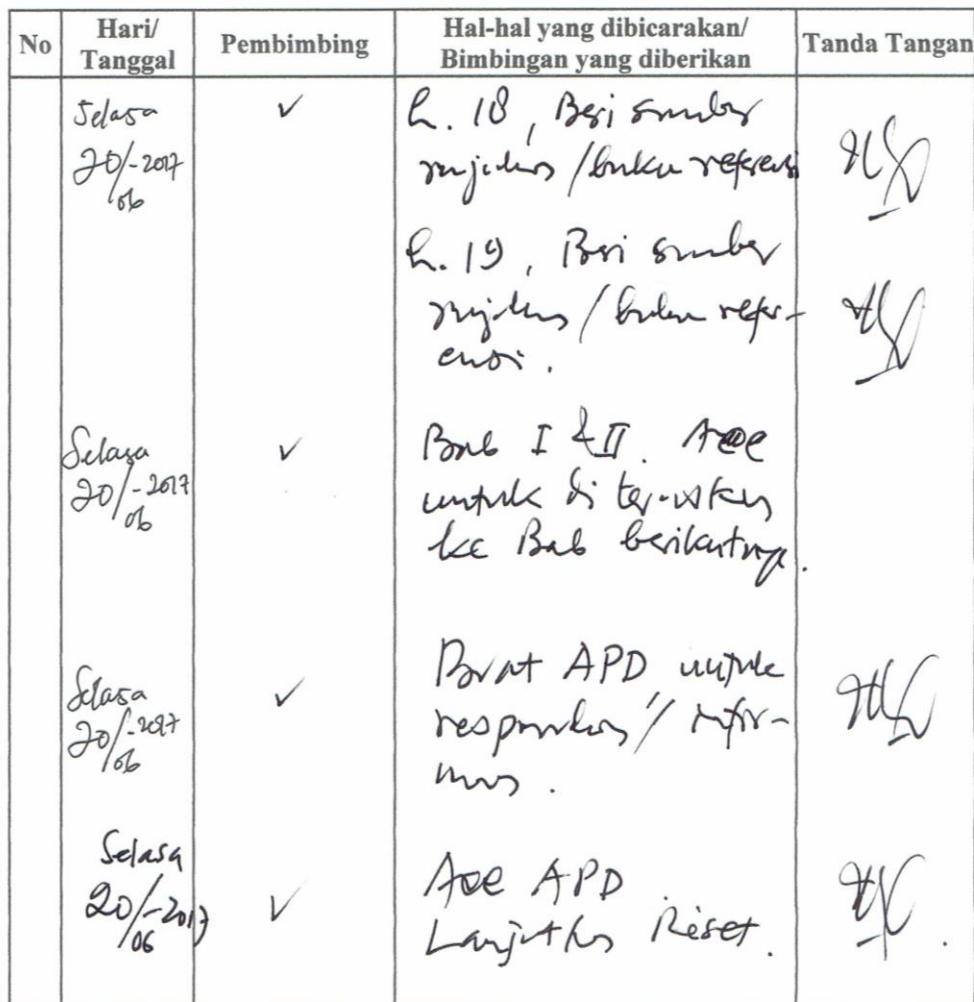 No
Hari/
Tanggal
Pembimbing
Hal-hal yang dibicarakan/
Bimbingan yang diberikan
Tanda Tangan
Selasa
20/-2017
06
✓
h. 18, Beri sumber
rujukan / buku referensi
h. 19, Beri sumber
rujukan / buku refer-
ensi.
Selasa
20/-2017
06
✓
Bab I & II. Acc
untuk di teruskan
ke Bab berikutnya.
Selasa
20/-2017
06
✓
Buat APD untuk
responden / infor-
man.
Selasa
20/-2017
06
✓
Acc APD
Lanjutkan Riset.